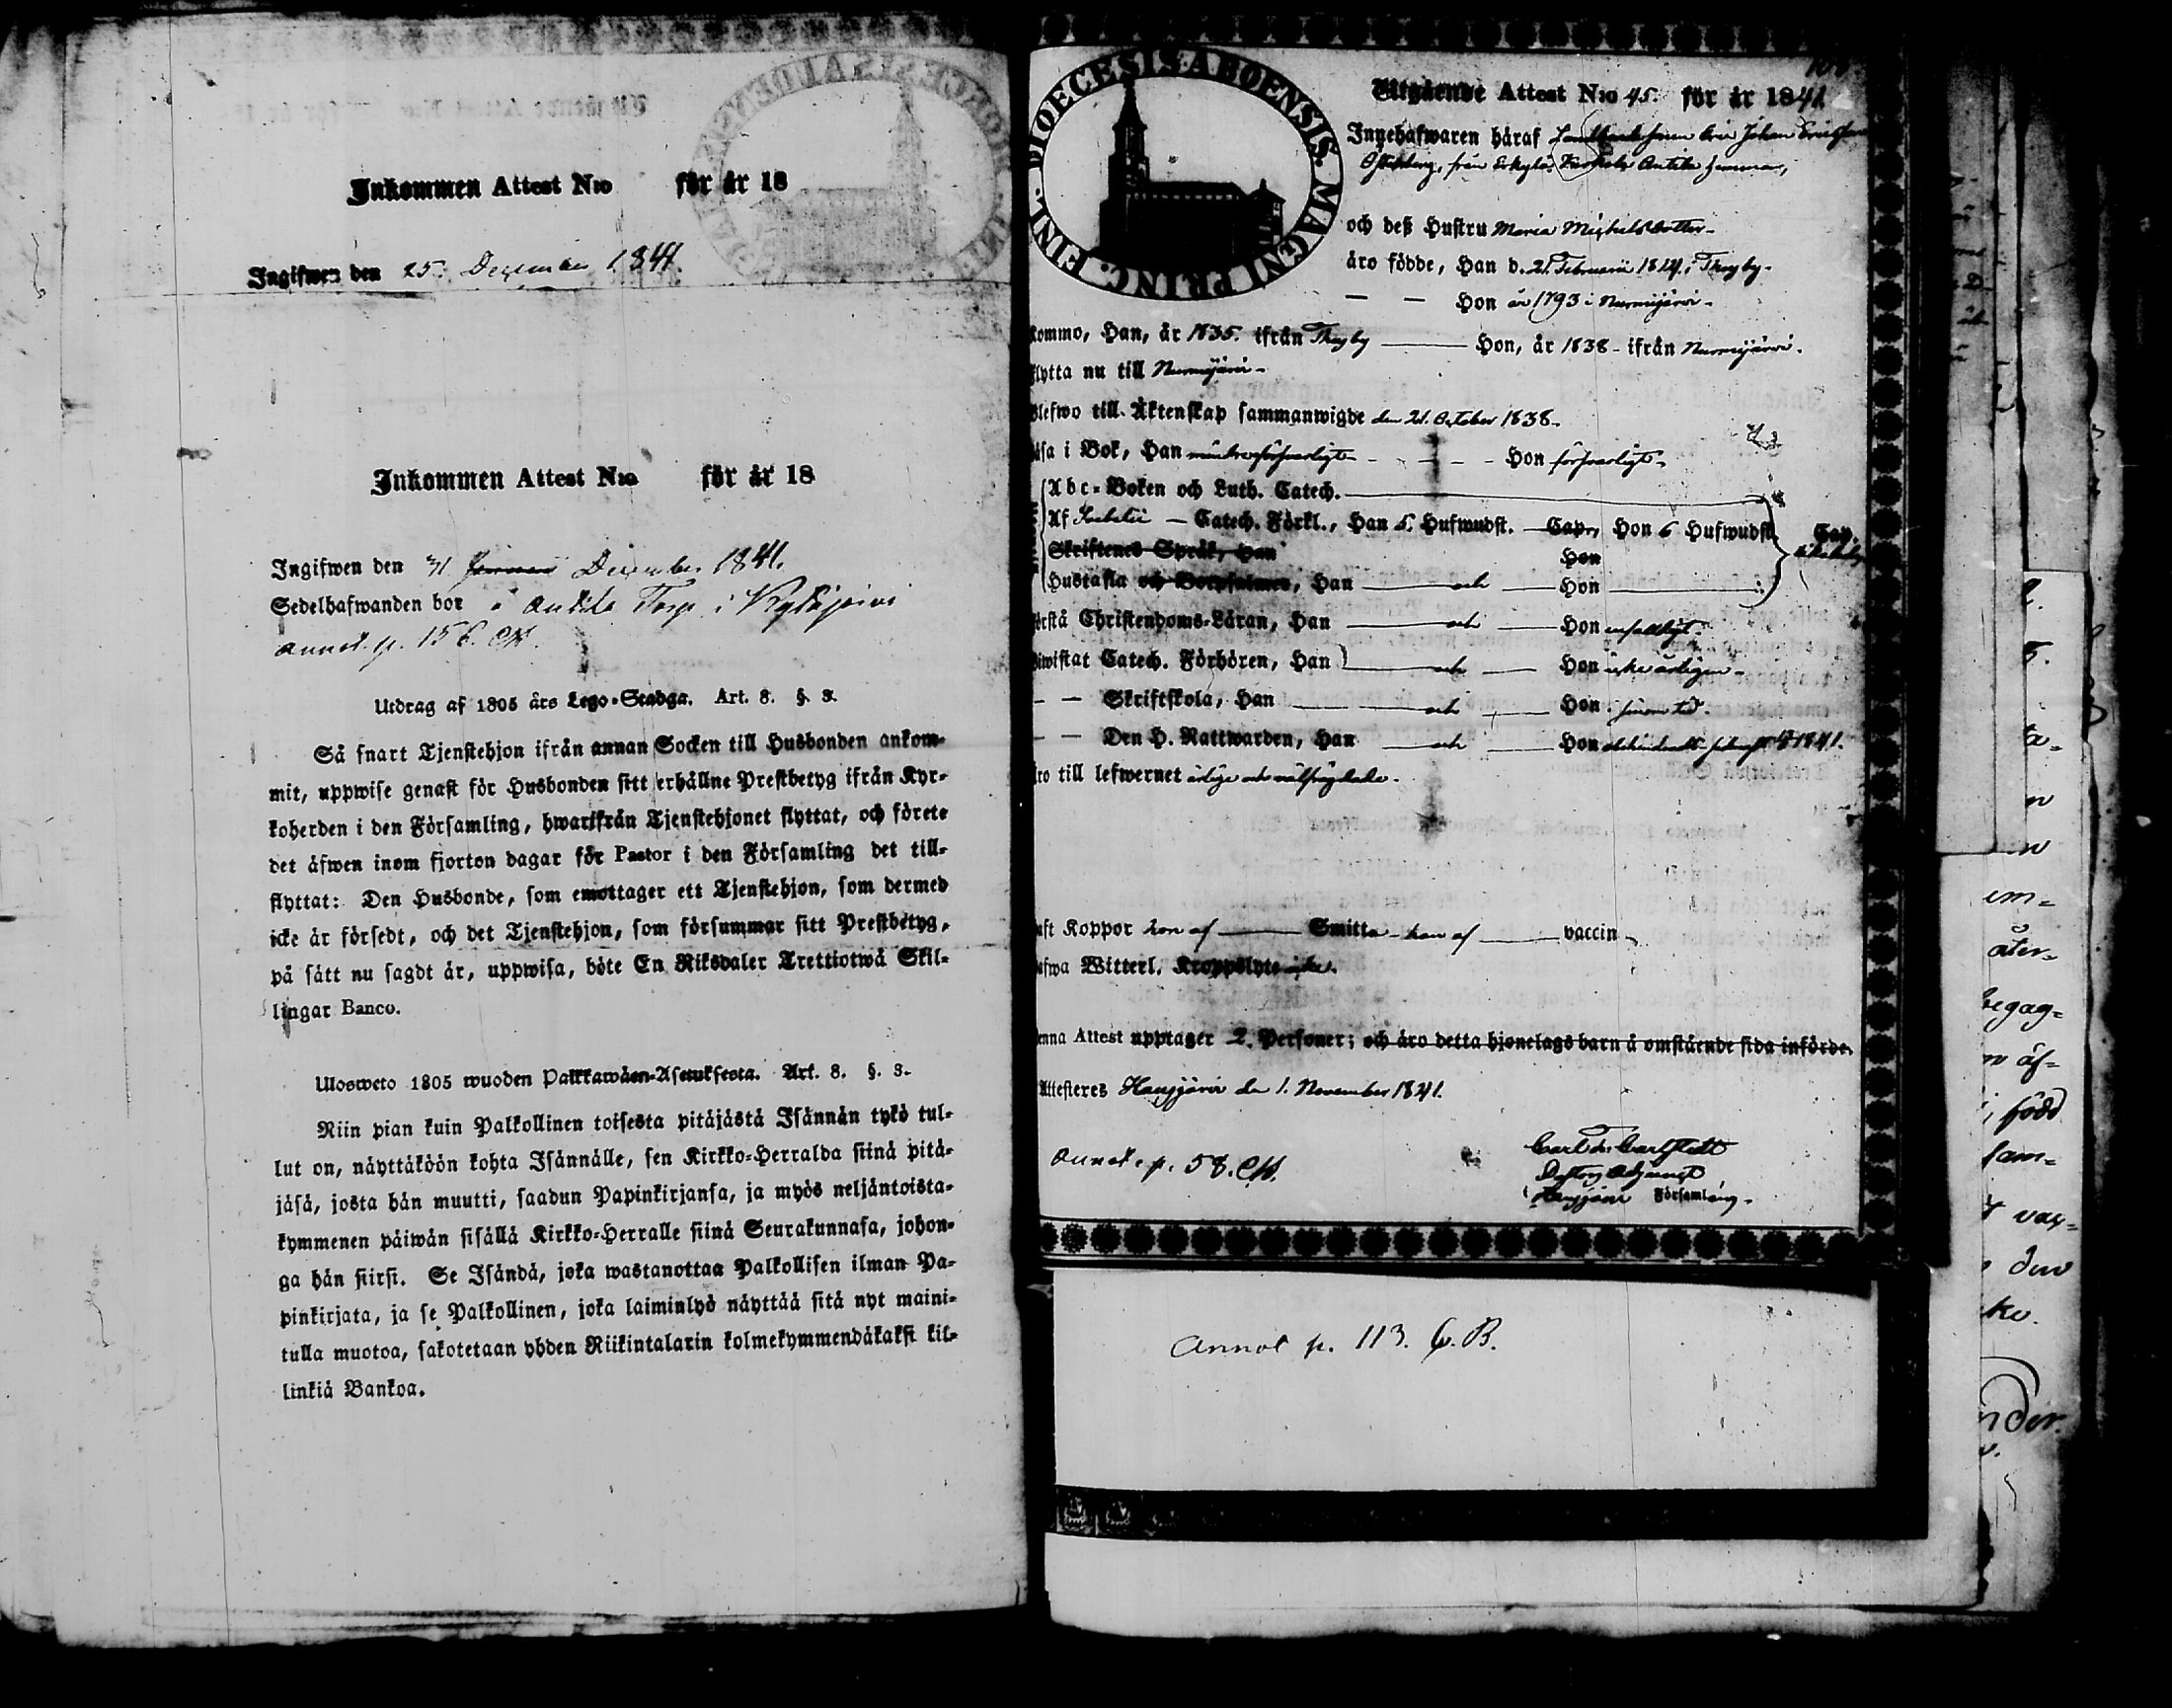 Inkommen Attest N:o för år 18
Ingifwen den 25. December 1841.
Inkommen Attest N:o för år 18
Ingifwen den 31 December 1841.
Sedelhafwanden bor å Anttila Torp i Kytäjärvi
annot. p. 156. CH.
Utdrag af 1805 års Lego-Stadga. Art. 8. §. 3.
Så snart Tjenstehjon ifrån annan Socken till Husbonden ankom-
mit, uppwise genast för Husbonden sitt erhållne Prestbetyg ifrån Kyr-
koherden i den Församling, hwarifrån Tjenstehjonet flyttat, och förete
det äfwen inom fjorton dagar för Pastor i den Församling det till-
flyttat: Den Husbonde, som emottager ett Tjenstehjon, som dermed
icke är försedt, och det Tjenstehjon, som försummar sitt Prestbetyg,
på sätt nu sagdt är, uppwisa, böte En Riksdaler Trettiotwå Skil-
lingar Banco.
Ulosweto 1805 wuoden Palkkawäen-Asetuksesta. Art. 8. §. 3.
Niin pian kuin Palkollinen toisesta pitäjästä Isännän tykö tul-
lut on, näyttäköön kohta Isännälle, sen Kirkko-Herralda siinä pitä-
jäsä, josta hän muutti, saadun Papinkirjansa, ja myös neljäntoista-
kymmenen päiwän sisällä Kirkko-Herralle siinä Seurakunnasa, johon-
ga hän siirsi. Se Isändä, joka wastanottaa Palkollisen ilman Pa-
pinkirjata, ja se Palkollinen, joka laiminlyö näyttää sitä nyt maini-
tulla muotoa, sakotetaan yhden Riikintalarin kolmekymmendäkaksi kil-
linkiä Bankoa.
DIOECESIS ABOENSIS. MAGNI PRINC. FINL.
Utgående Attest N:o 45. för år 1841
Innehafwaren häraf Johan Ericsson
från Erkylä Anttila hemman,
och deß Hustru Maria Michelsdotter
äro födde, Han d. 21 Februarii 1814 i Thusby
— — Hon år 1793 i Nurmijärvi
kommo, Han, år 1835. ifrån Thusby — Hon, år 1838 ifrån Nurmijärvi.
flytta nu till Nurmijärvi
Blefwo till Äktenskap sammanwigde den 21. October 1838.
läsa i Bok, Han mindre försvarligt - - - Hon försvarligt
Abc-Boken och Luth. Catech.
Af Svebelii — Catech. Förkl., Han 5. Hufwudst. — Cap., Hon 6 Hufwudst. Cap.
Skriftenes Språk, Han Hon
Hustafla och Botpsalmer, Han — och — Hon
förstå Christendoms-Läran, Han — och — Hon enfaldigt.
biwistat Catech. Förhören, Han — och — Hon icke årligen
— — Skriftskola, Han — och — Hon
— — Den H. Nattwarden, Han — och — Hon 1841.
äro till lefwernet ärlige och välfrägdade.
haft Koppor hon af — Smitta han af — vaccin
hafwa Witterl. Kroppslyte icke.
denna Attest upptager 2. Personer; och äro detta hjonelags barn å omstående sida införde.
Attesteres Hausjärvi den 1. November 1841.
Annot. p. 58. CH.
Carl Carlstedt
Hausjärvi Församling
Annot p. 113. C. B.
em-
åter-
begag-
af-
född
sam-
vax-
den